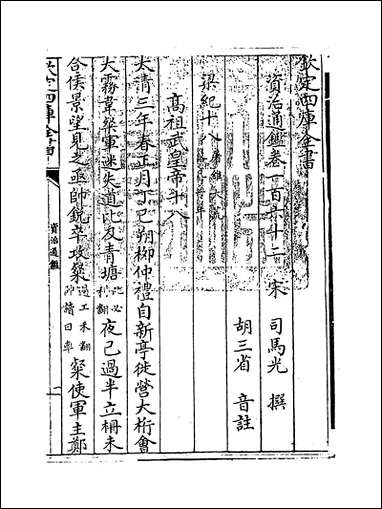 欽定四庫全書
資治通鑑卷一百六十二　宋　司馬光　撰
胡三省　音註
梁紀十八 屠維大
高祖武皇帝十八
太清三年春正月丁巳朔柳仲禮自新亭徙營大桁會
大霧韋粲軍迷失道比及青塘比必利翻夜已過半立柵未
合侯景望見之亟帥銳卒攻粲過工禾翻帥讀曰率粲使軍主鄭
欽定四庫全書
資治通鑑
一